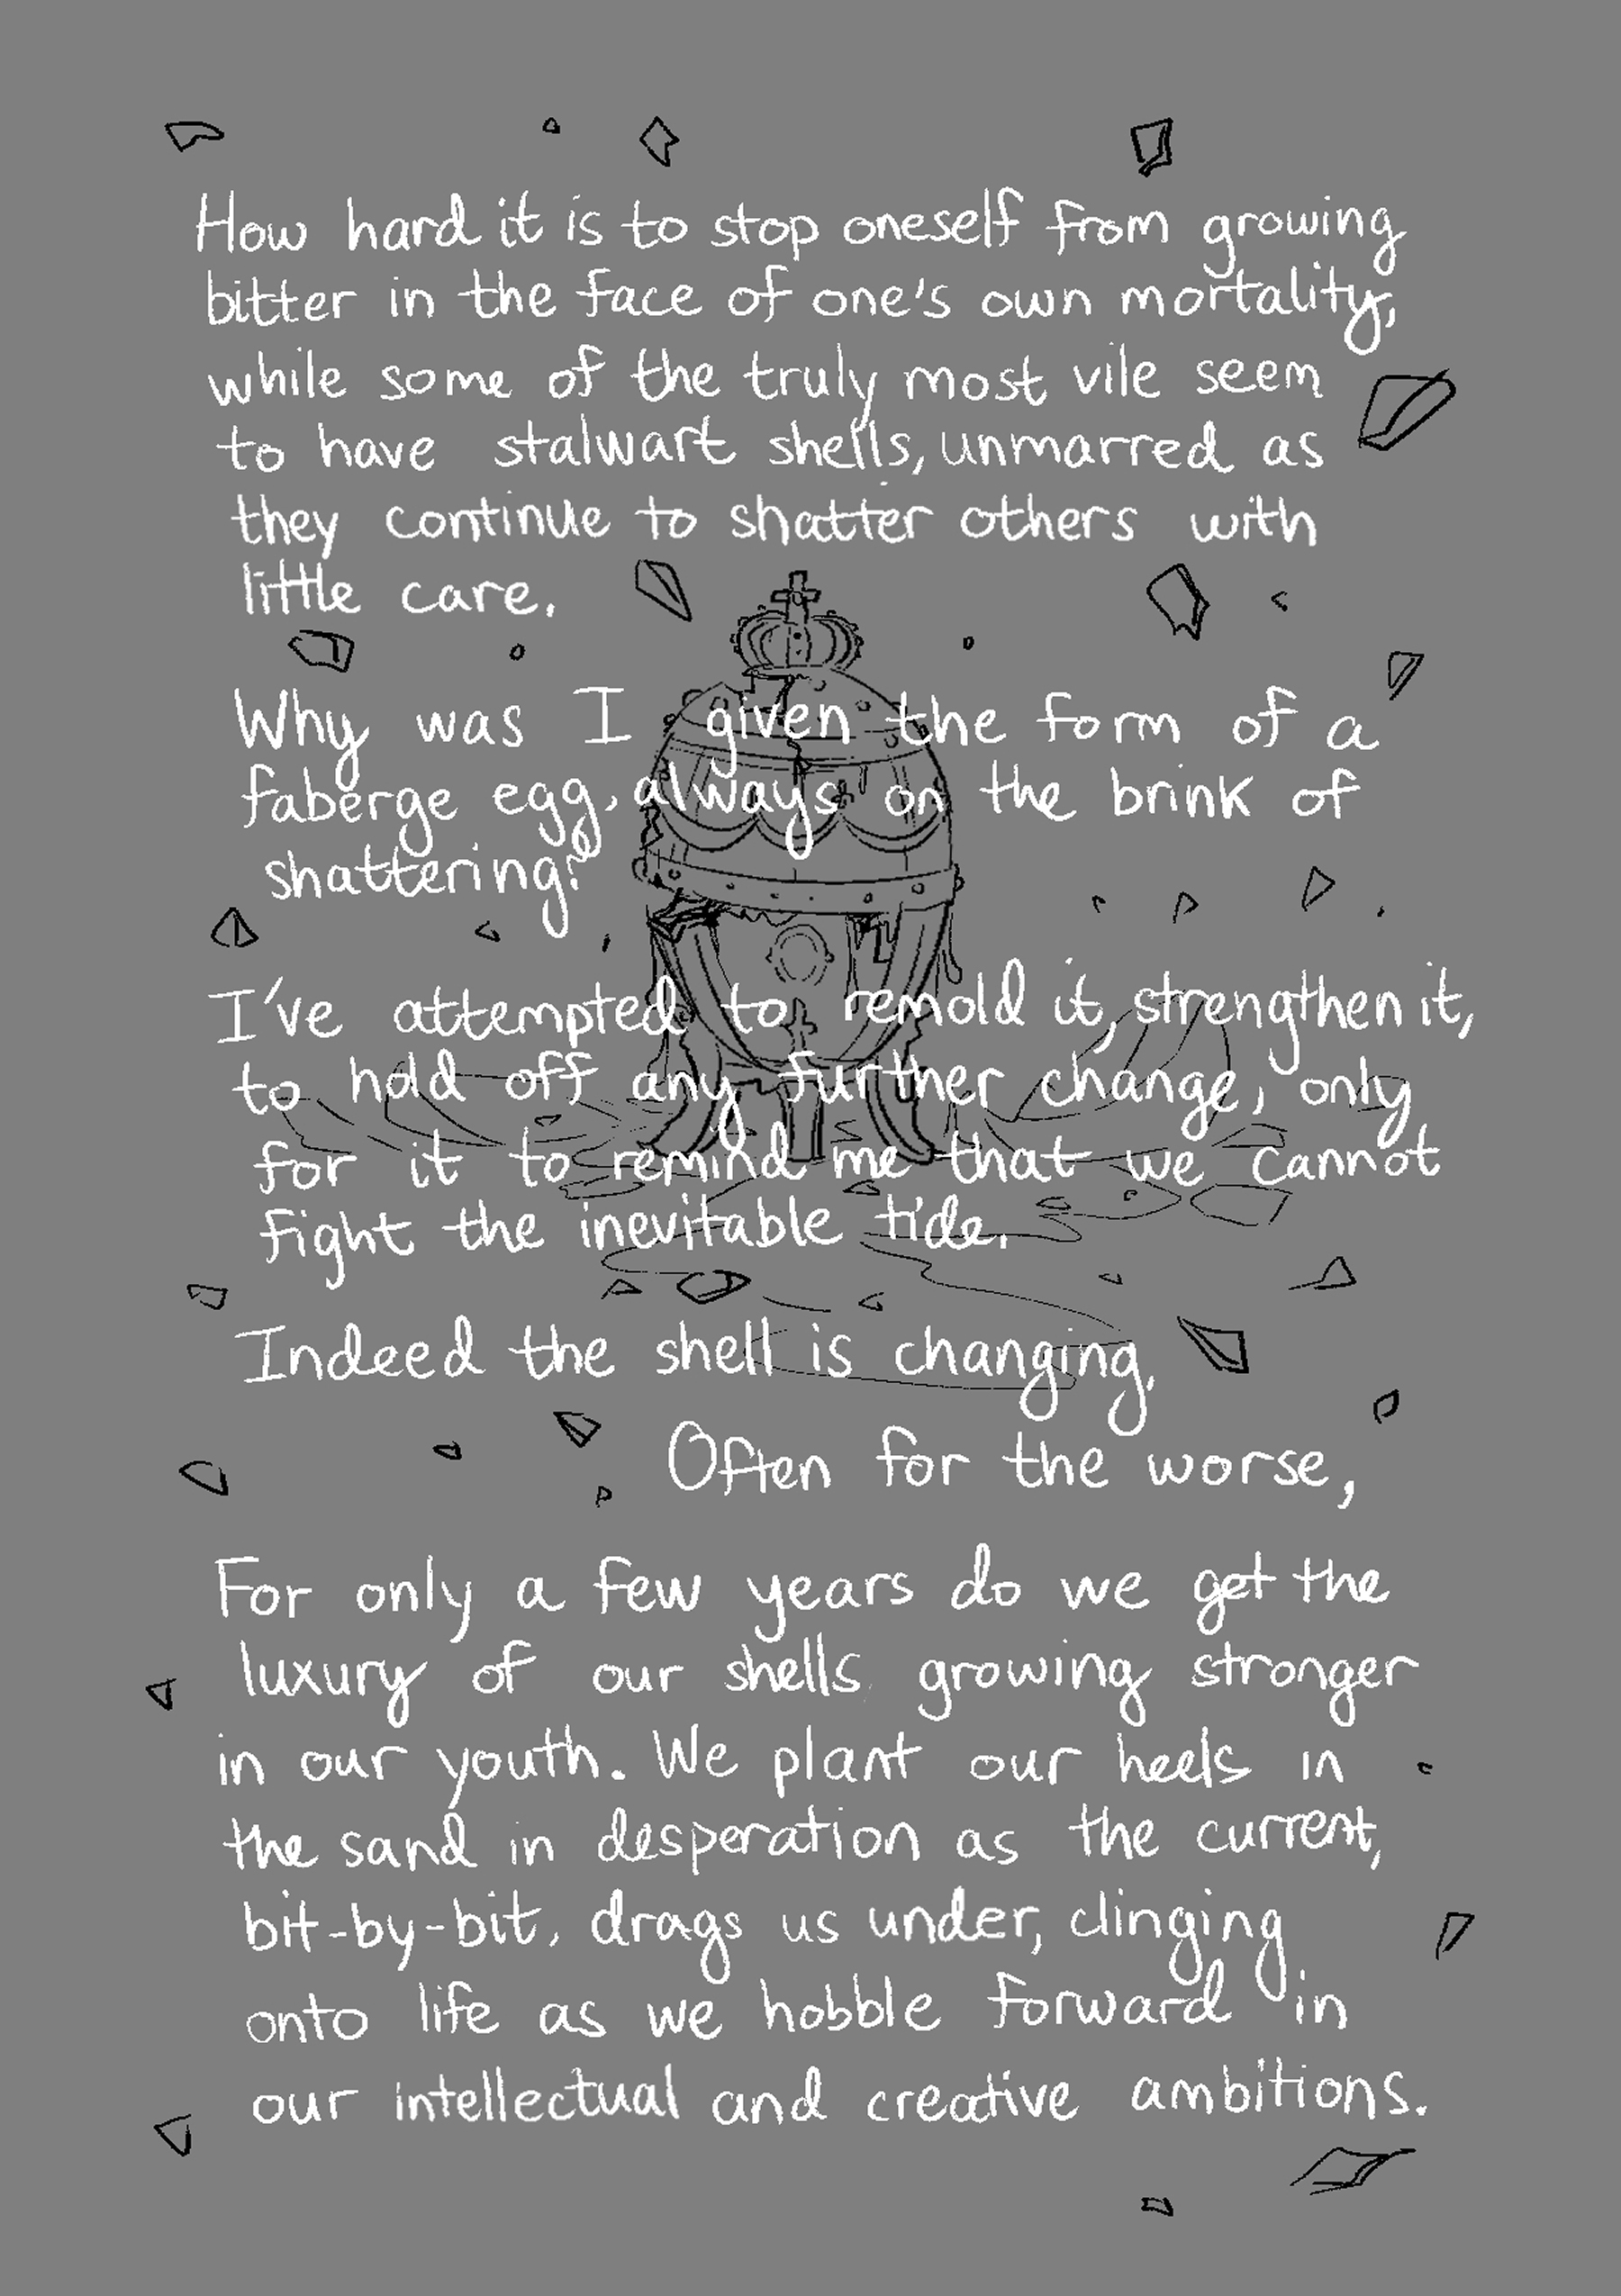 How hard it is to stop oneself from growing
bitter in the face of one's own mortality,
while some of the truly most vile seem
to have stalwart shells, unmarred as
they continue to shatter others with
little care.
Why was I given the form of a
faberge egg, always on the brink of
shattering?
I've attempted to remold it, strengthen it,
to hold off any further change, only
for it to remind me that we cannot
fight the inevitable tide.
Indeed the shell is changing.
Often for the worse,
For only a few years do we get the
luxury of our shells growing stronger
in our youth. We plant our heels in
the sand in desperation as the current,
bit-by-bit, drags us under, clinging
onto life as we hobble forward in
our intellectual and creative ambitions.